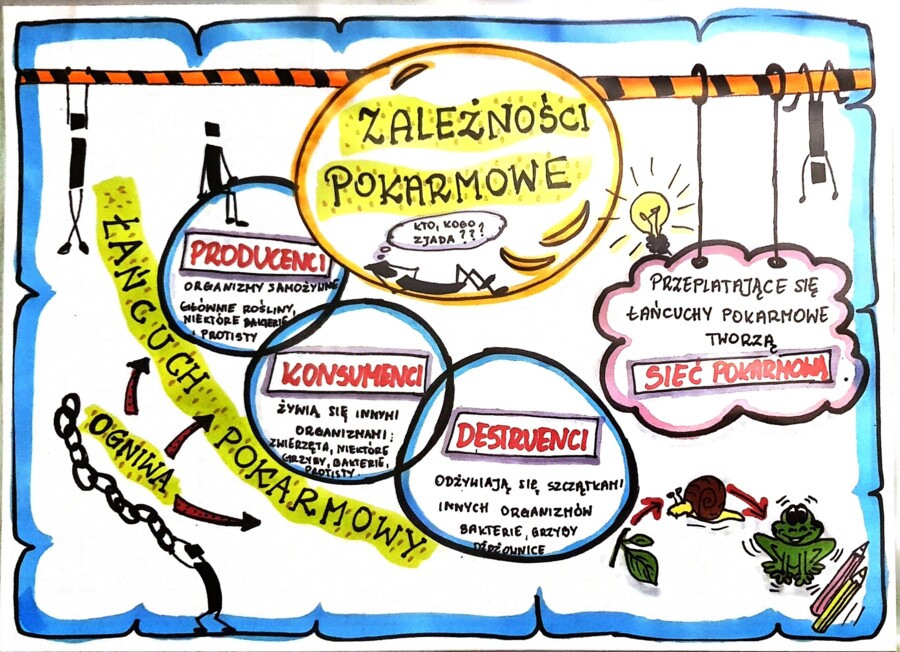 ZALEŻNOŚCI
POKARMOWE
KTO, KOGO
ZJADA ???
ŁAŃCUCH POKARMOWY
OGNIWA
PRODUCENCI
ORGANIZMY SAMOŻYWNE
GŁÓWNIE ROŚLINY,
NIEKTÓRE BAKTERIE
PROTISTY
KONSUMENCI
ŻYWIĄ SIĘ INNYMI
ORGANIZMAMI:
ZWIERZĘTA, NIEKTÓRE
GRZYBY, BAKTERIE,
PROTISTY
DESTRUENCI
ODŻYWIAJĄ SIĘ SZCZĄTKAMI
INNYCH ORGANIZMÓW
BAKTERIE, GRZYBY
DŻDŻOWNICE
PRZEPLATAJĄCE SIĘ
ŁAŃCUCHY POKARMOWE
TWORZĄ
SIEĆ POKARMOWĄ